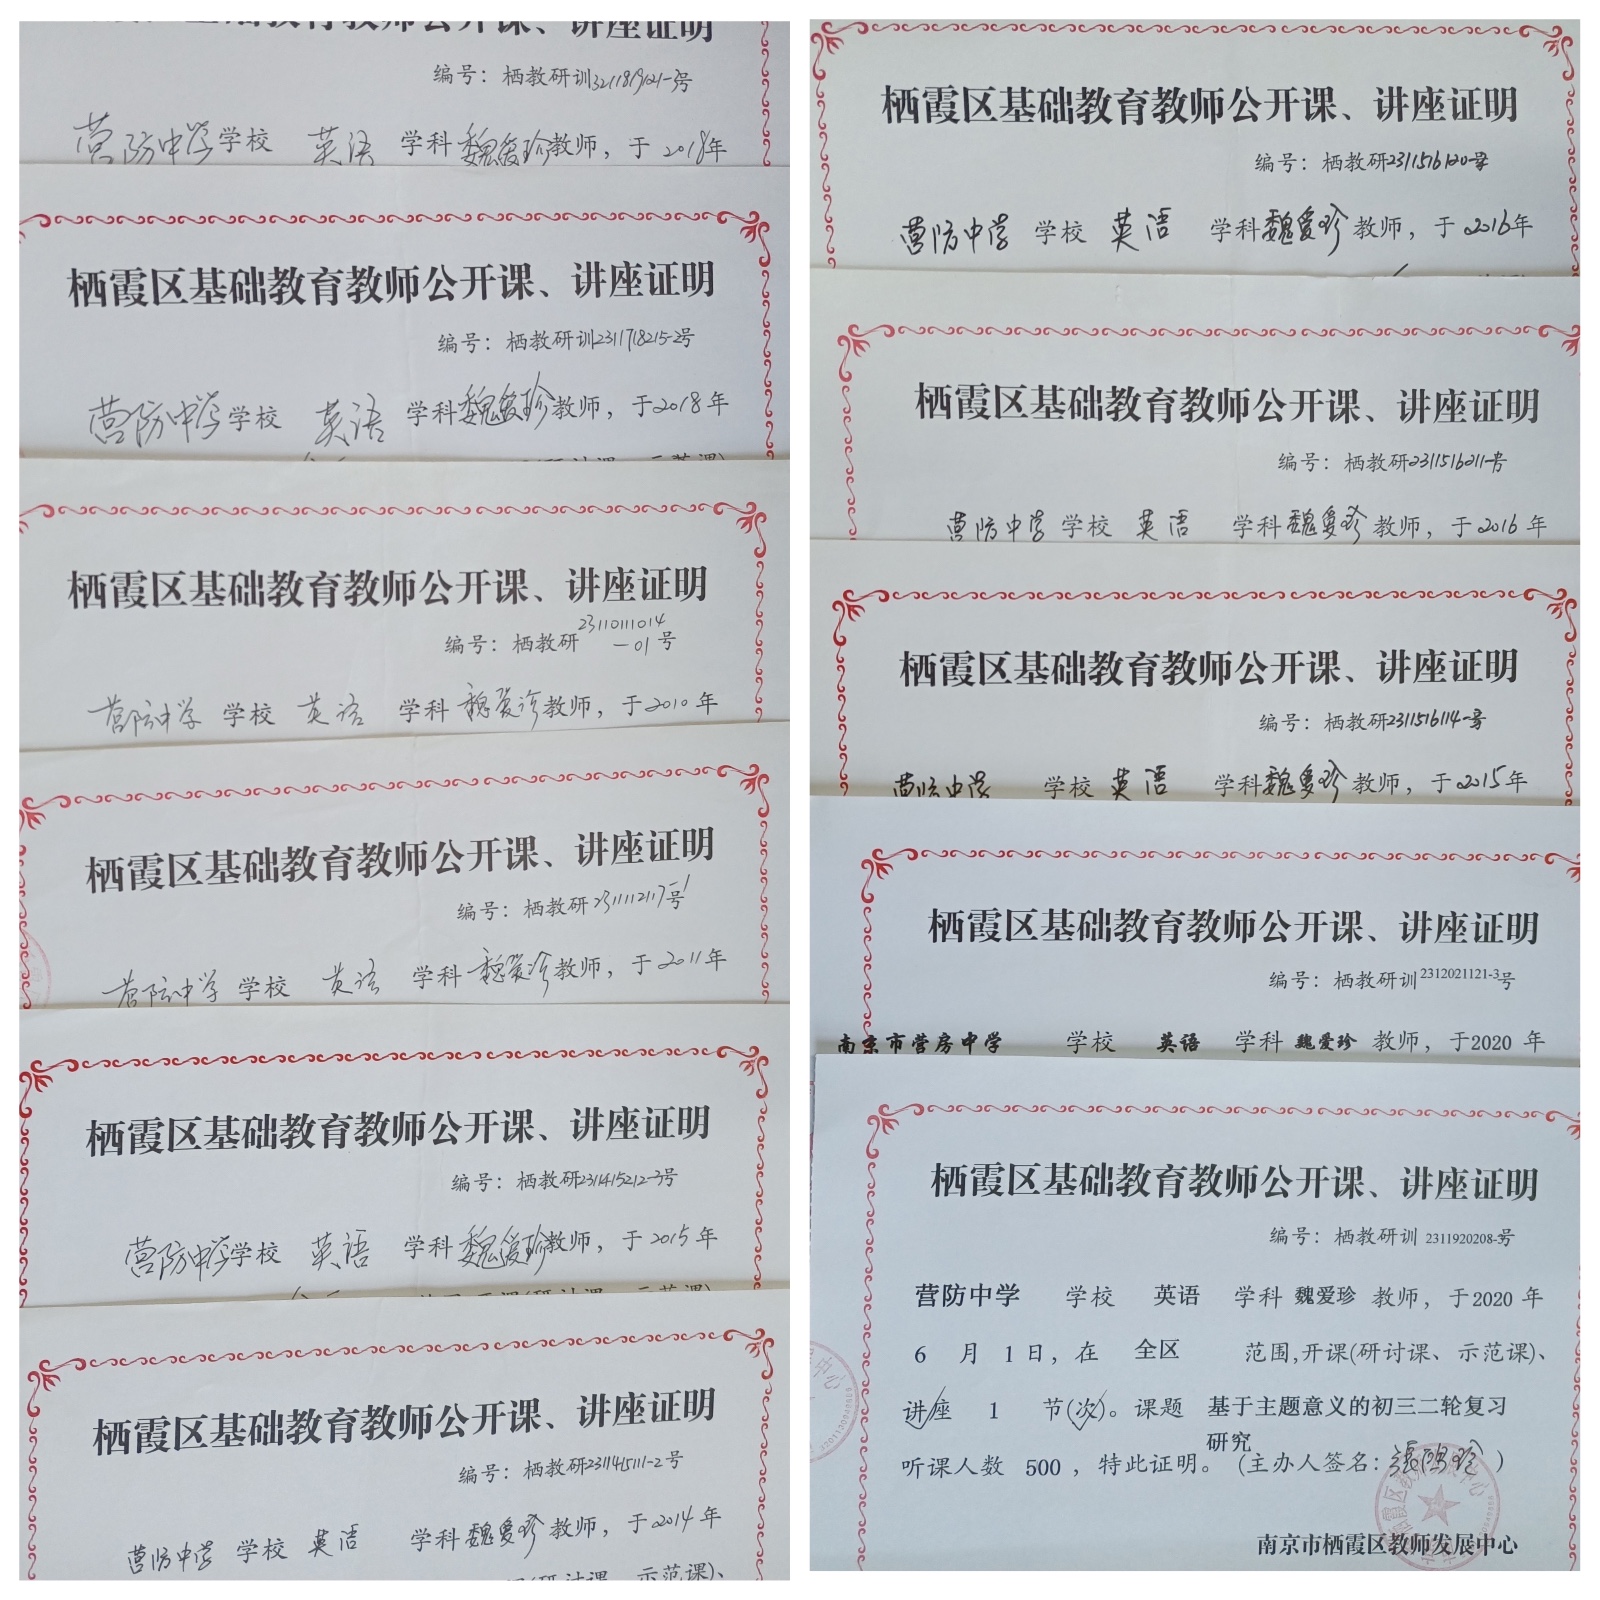 栖霞区基础教育教师公开课、讲座证明
编号：栖教研训
营防中学学校 英语 学科魏爱珍教师，于2018年
栖霞区基础教育教师公开课、讲座证明
编号：栖教研训2311718215-2号
营防中学学校 英语 学科魏爱珍教师，于2018年
栖霞区基础教育教师公开课、讲座证明
编号：栖教研23110111014-01号
营防中学 学校 英语 学科魏爱珍教师，于2010年
栖霞区基础教育教师公开课、讲座证明
编号：栖教研
营防中学 学校 英语 学科魏爱珍教师，于2011年
栖霞区基础教育教师公开课、讲座证明
编号：栖教研2311415212-3号
营防中学学校 英语 学科魏爱珍教师，于2015年
栖霞区基础教育教师公开课、讲座证明
编号：栖教研2311415111-2号
营防中学 学校 英语 学科魏爱珍教师，于2014年
(研讨课、示范课)、
栖霞区基础教育教师公开课、讲座证明
编号：栖教研
营防中学 学校 英语 学科魏爱珍教师，于2016年
栖霞区基础教育教师公开课、讲座证明
编号：栖教研
营防中学 学校 英语 学科魏爱珍教师，于2016年
栖霞区基础教育教师公开课、讲座证明
编号：栖教研
营防中学 学校 英语 学科魏爱珍教师，于2015年
栖霞区基础教育教师公开课、讲座证明
编号：栖教研训2312021121-3号
南京市营房中学 学校 英语 学科 魏爱珍 教师，于2020年
栖霞区基础教育教师公开课、讲座证明
编号：栖教研训 2311920208-号
营防中学 学校 英语 学科 魏爱珍 教师，于2020年
6 月 1日，在 全区 范围,开课(研讨课、示范课)、
讲座 1 节(次)。课题 基于主题意义的初三二轮复习
研究
听课人数 500 ，特此证明。（主办人签名: ）
南京市栖霞区教师发展中心